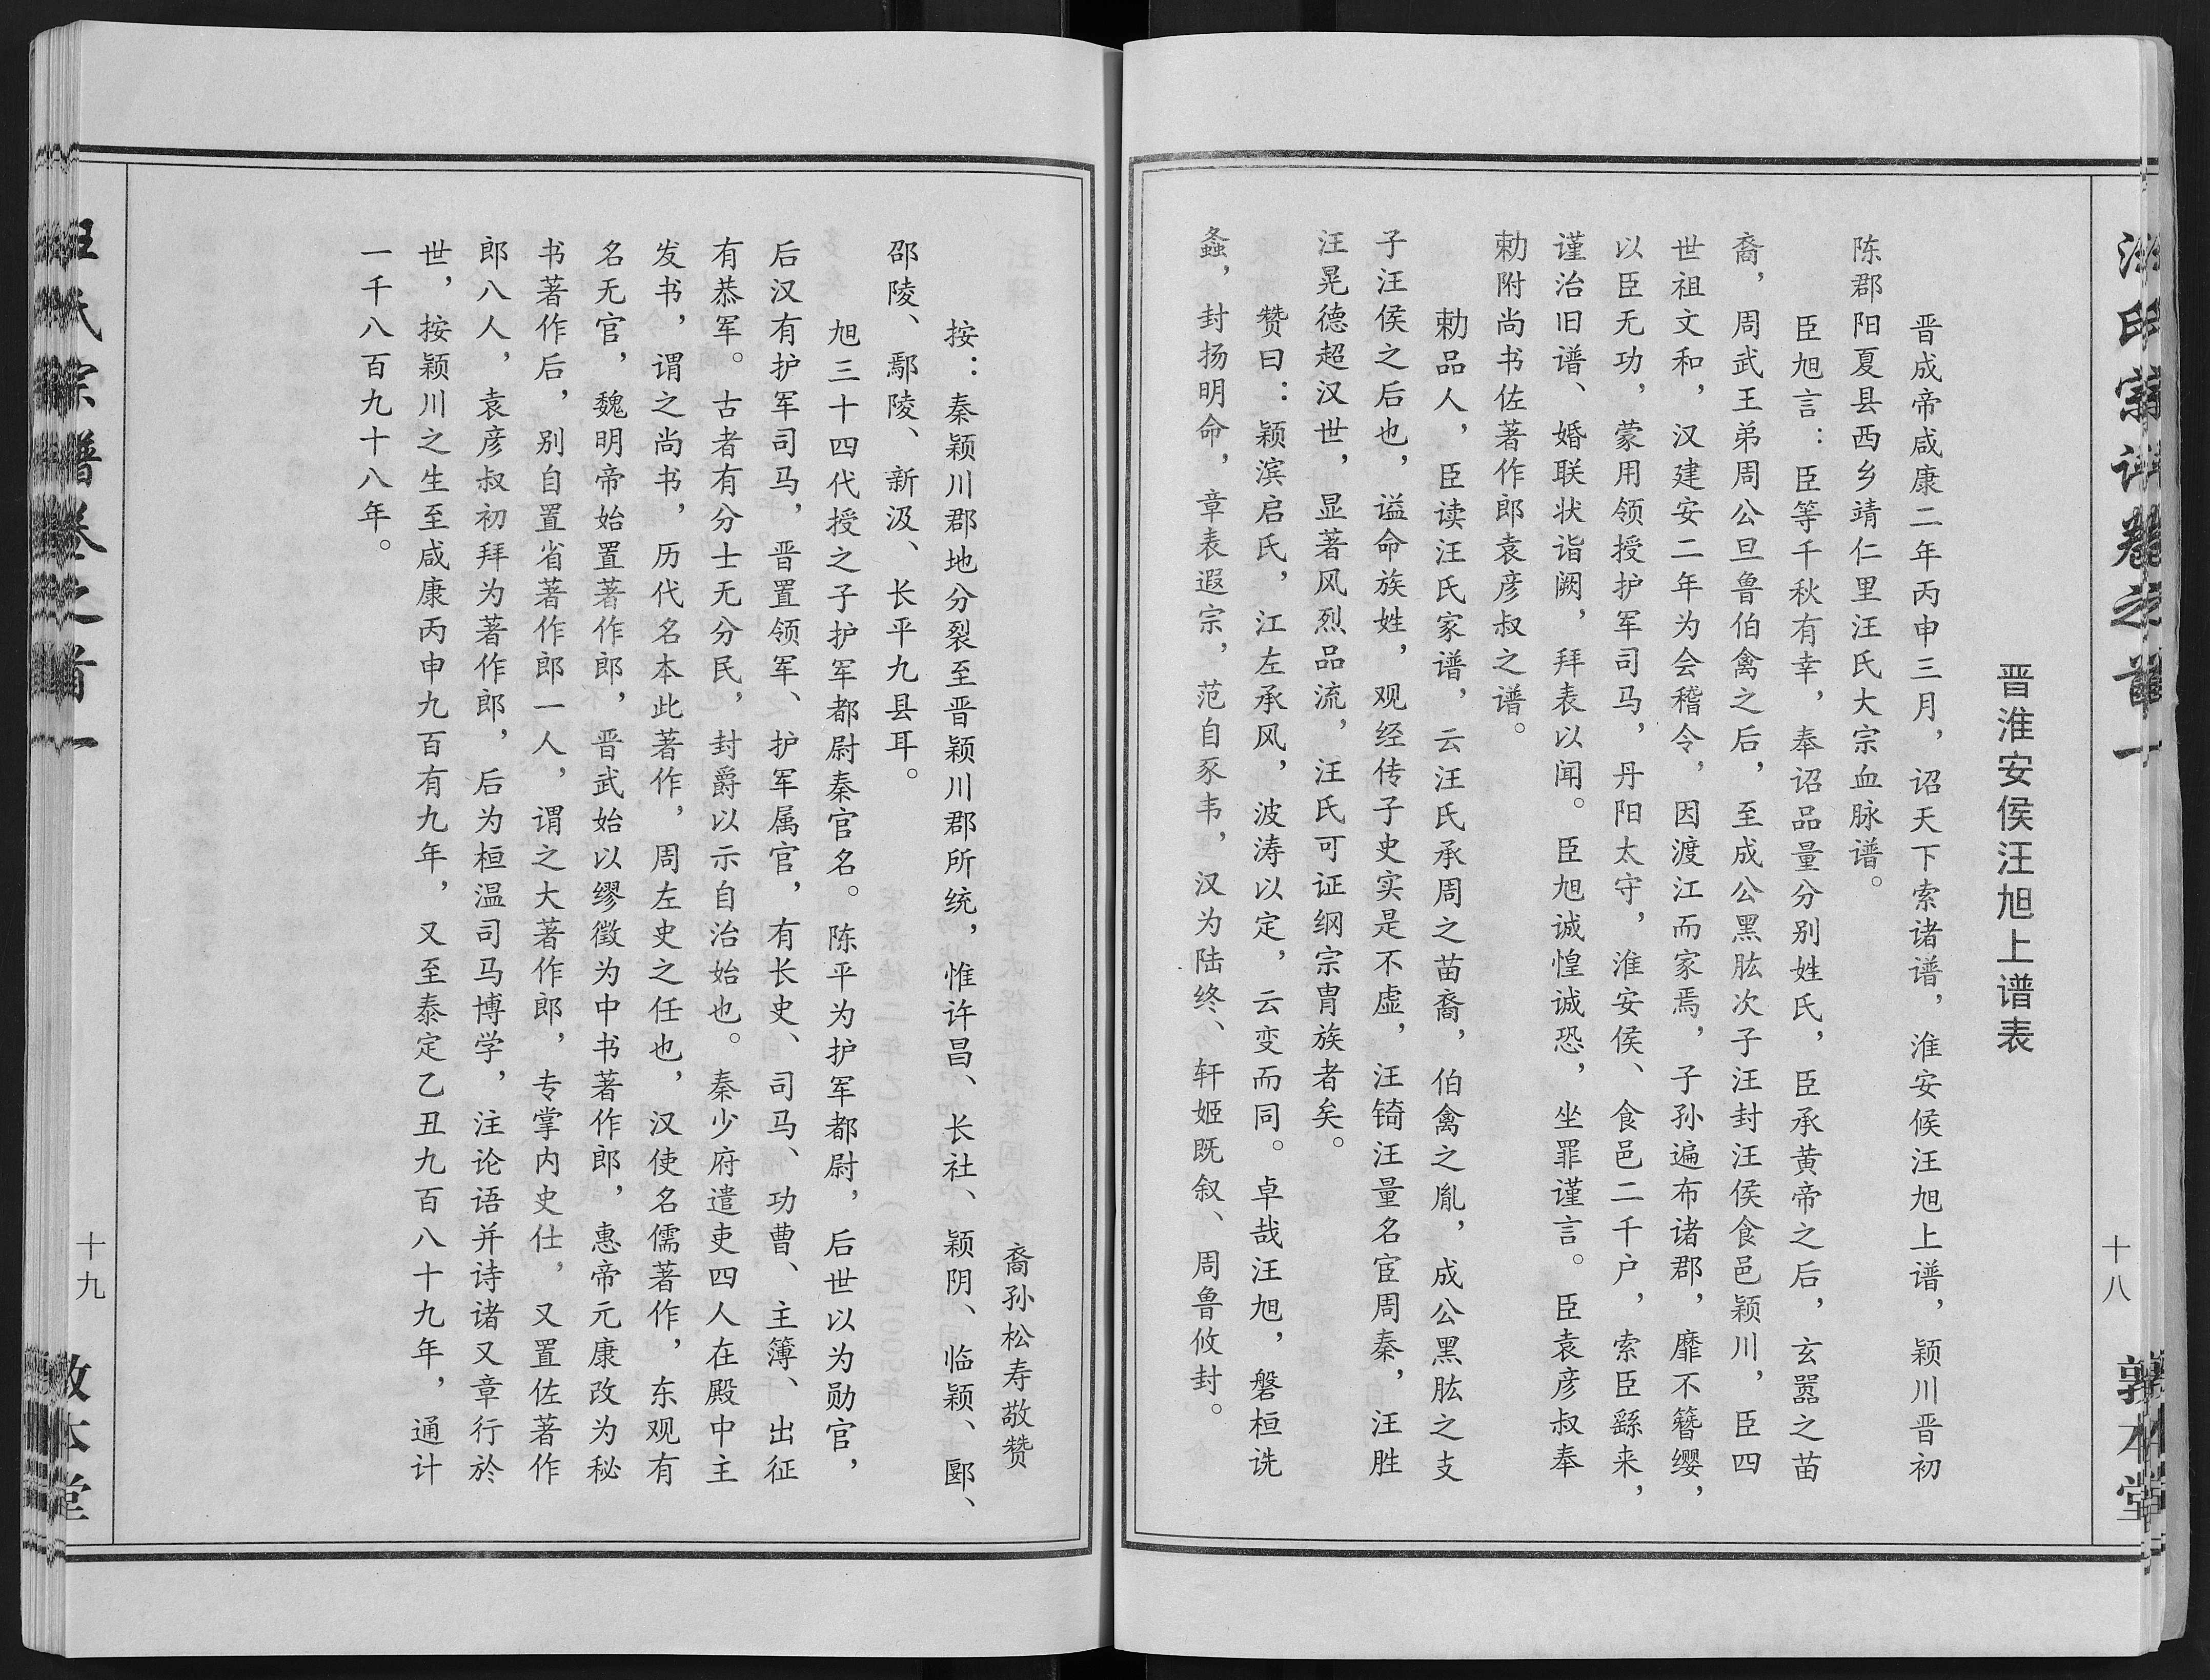 汪氏宗谱卷之首一
十八
敦本堂
晋淮安侯汪旭上谱表
晋成帝咸康二年丙申三月，诏天下索诸谱，淮安候汪旭上谱，颍川晋初
陈郡阳夏县西乡靖仁里汪氏大宗血脉谱。
臣旭言：臣等千秋有幸，奉诏品量分别姓氏，臣承黄帝之后，玄嚣之苗
裔，周武王弟周公旦鲁伯禽之后，至成公黑肱次子汪封汪侯食邑颍川，臣四
世祖文和，汉建安二年为会稽令，因渡江而家焉，子孙遍布诸郡，靡不簪缨，
以臣无功，蒙用领授护军司马，丹阳太守，淮安侯、食邑二千户，索臣繇来，
谨治旧谱、婚联状诣阙，拜表以闻。臣旭诚惶诚恐，坐罪谨言。臣袁彦叔奉
勅附尚书佐著作郎袁彦叔之谱。
勅品人，臣读汪氏家谱，云汪氏承周之苗裔，伯禽之胤，成公黑肱之支
子汪侯之后也，谥命族姓，观经传子史实是不虚，汪锜汪量名宦周秦，汪胜
汪晃德超汉世，显著风烈品流，汪氏可证纲宗胄族者矣。
赞曰：颍滨启氏，江左承风，波涛以定，云变而同。卓哉汪旭，磐桓诜
螽，封扬明命，章表遐宗，范自豕韦，汉为陆终、轩姬既叙、周鲁攸封。
裔孙松寿敬赞
按：秦颍川郡地分裂至晋颍川郡所统，惟许昌、长社、颍阴、临颍、郾、
邵陵、鄢陵、新汲、长平九县耳。
旭三十四代授之子护军都尉秦官名。陈平为护军都尉，后世以为勋官，
后汉有护军司马，晋置领军、护军属官，有长史、司马、功曹、主簿、出征
有恭军。古者有分士无分民，封爵以示自治始也。秦少府遣吏四人在殿中主
发书，谓之尚书，历代名本此著作，周左史之任也，汉使名儒著作，东观有
名无官，魏明帝始置著作郎，晋武始以缪徵为中书著作郎，惠帝元康改为秘
书著作后，别自置省著作郎一人，谓之大著作郎，专掌内史仕，又置佐著作
郎八人，袁彦叔初拜为著作郎，后为桓温司马博学，注论语并诗诸又章行於
世，按颍川之生至咸康丙申九百有九年，又至泰定乙丑九百八十九年，通计
一千八百九十八年。
汪氏宗谱卷之首一
十九
敦本堂